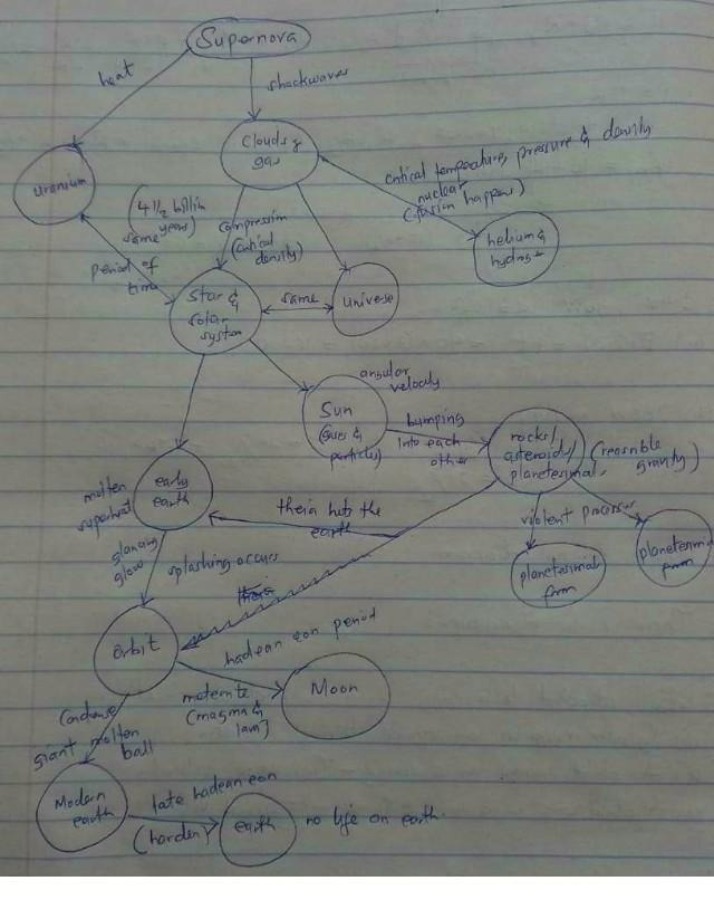 Supernova
heat
shockwaves
Clouds &
gas
uranium
critical temperature, pressure & density
nuclear
(fusion happens)
helium &
(4 1/2 billion
years)
same
period of
time
compression
(critical
density)
star &
solar
system
same
universe
angular
velocity
Sun
(gases &
particles)
bumping
into each
other
rocks/
asteroids/
planetesimal,
gravity)
early
earth
molten
superheat
theia hits the
earth
violent processes
planetesimal
form
planetesimal
form
splashing occurs
theia
orbit
hadean eon period
(magma &
lava)
Moon
Condense
giant molten
ball
Modern
earth
late hadean eon
(harden)
earth
no life on earth.